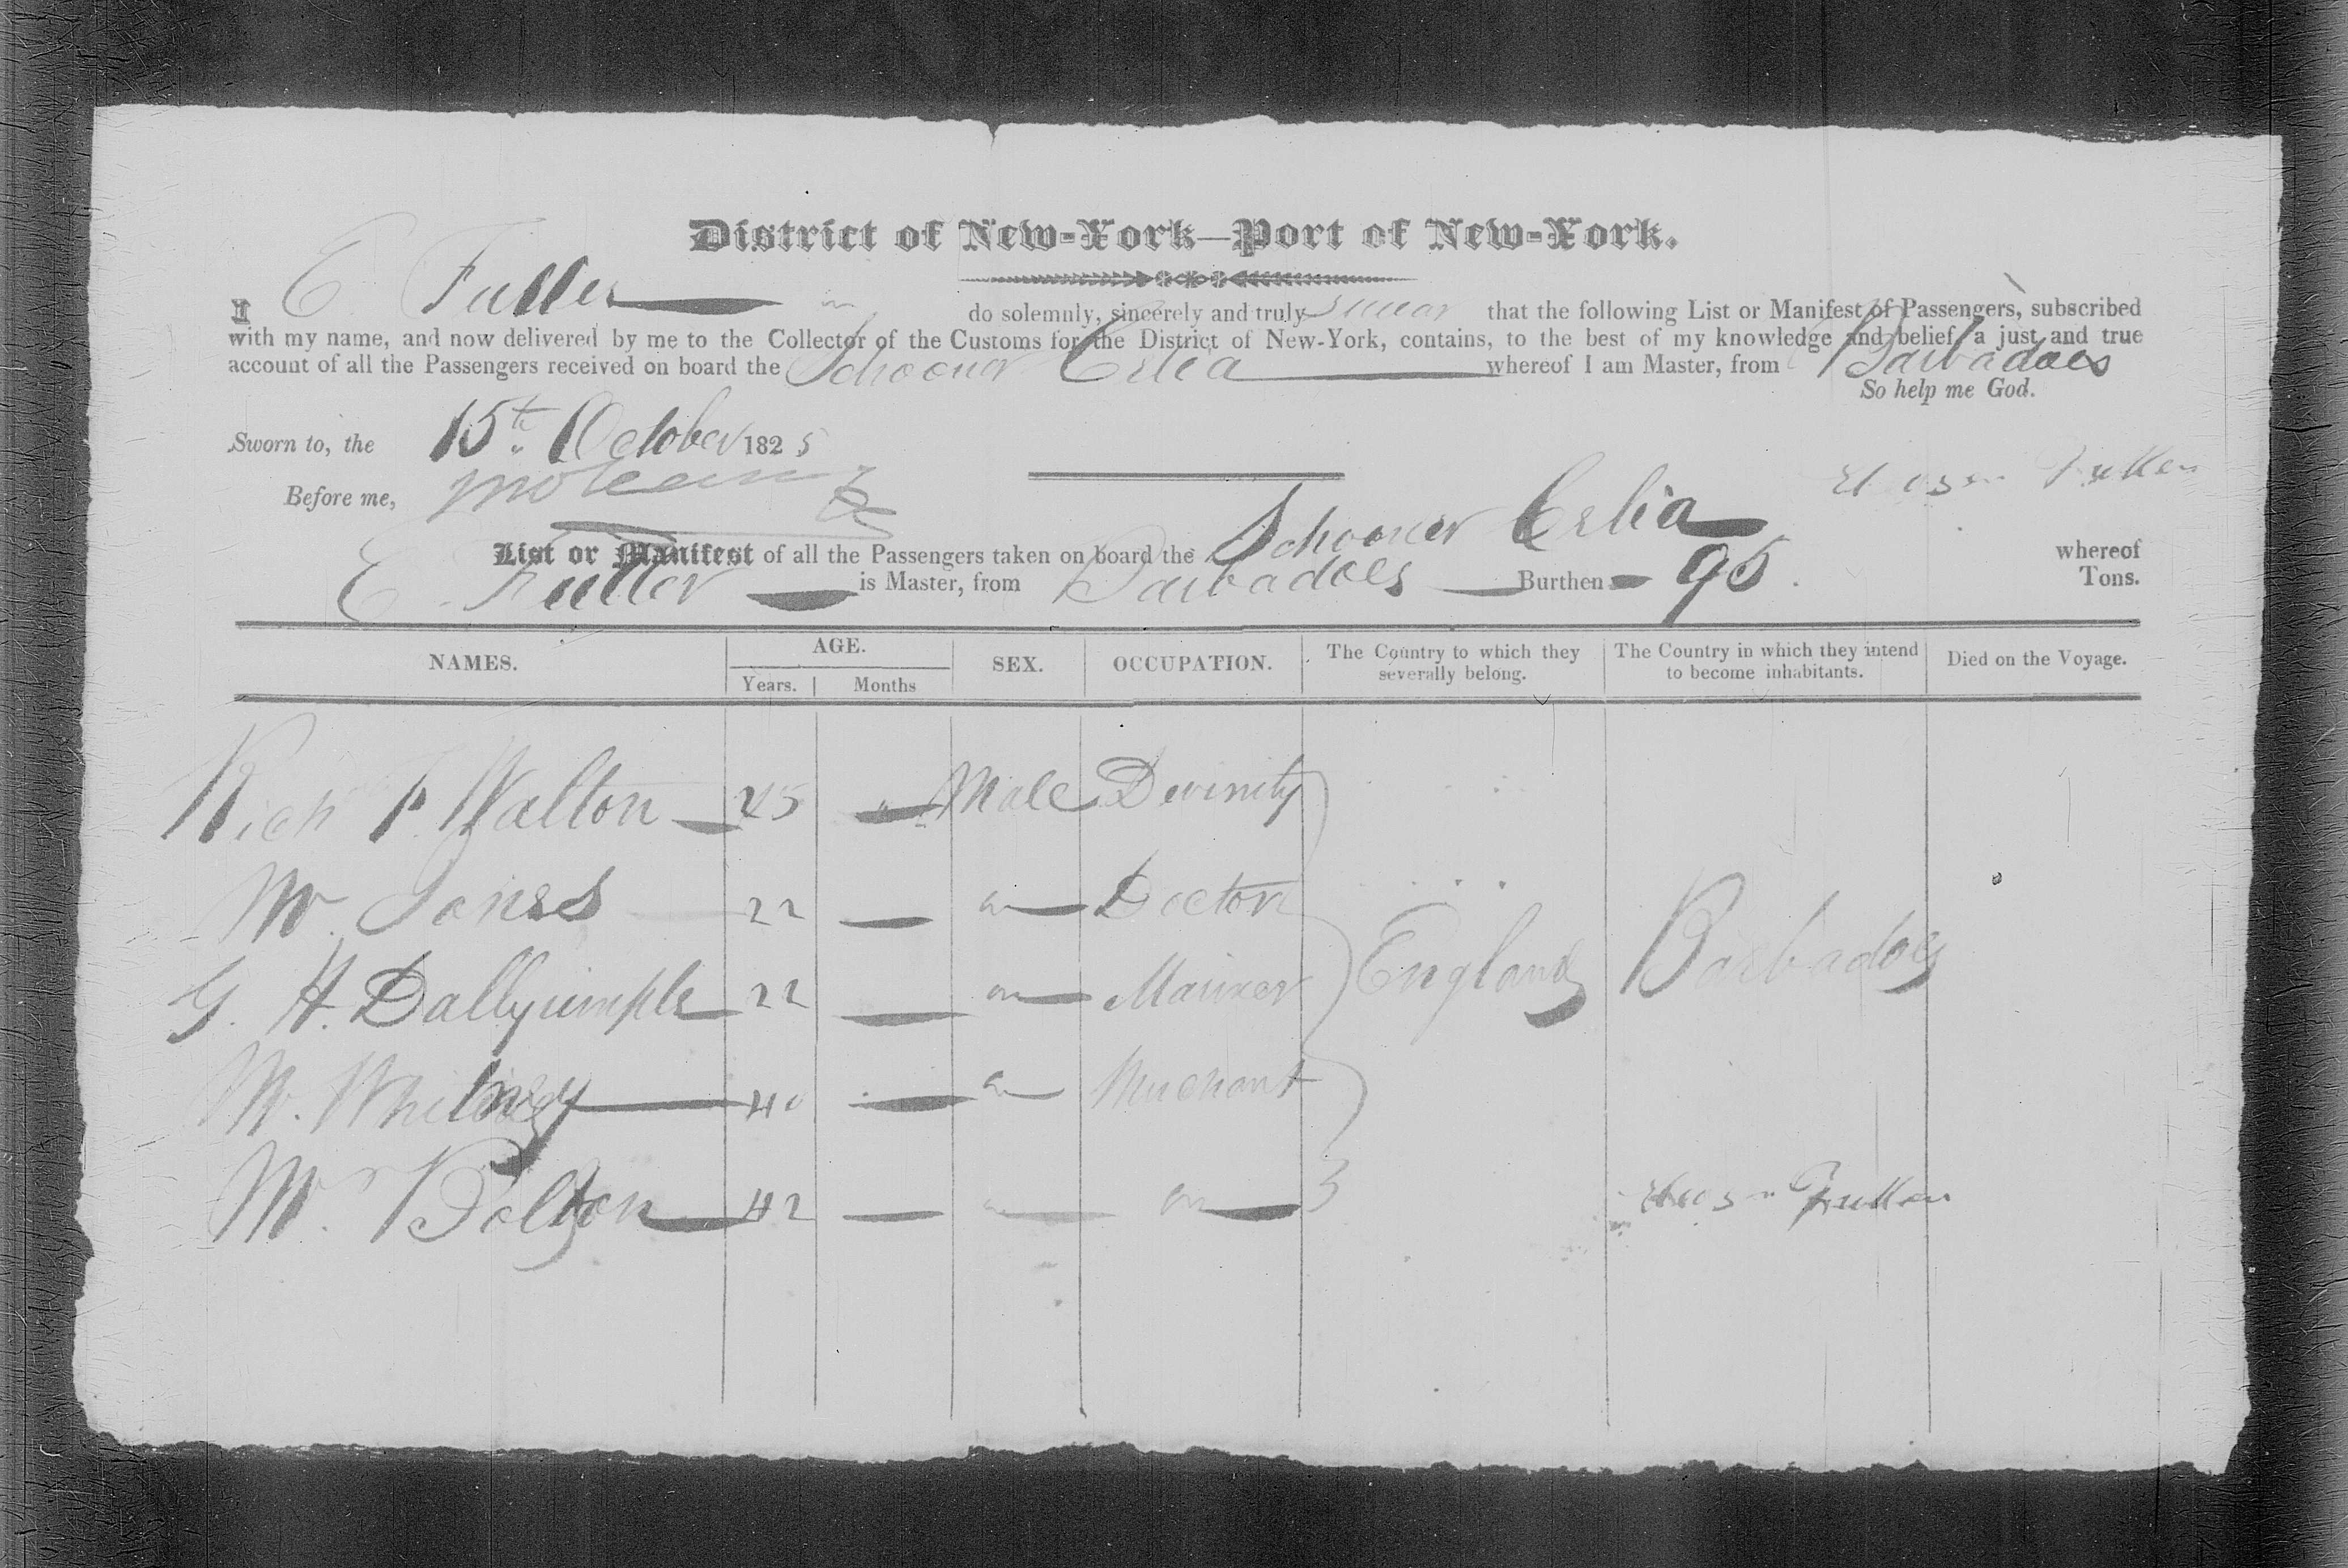 District of New-York—Port of New-York.
I E Fuller do solemnly, sincerely and truly swear that the following List or Manifest of Passengers, subscribed
with my name, and now delivered by me to the Collector of the Customs for the District of New-York, contains, to the best of my knowledge and belief, a just and true
account of all the Passengers received on board the Schooner whereof I am Master, from Barbadoes
So help me God.
Sworn to, the 15th October 1825
Before me,
Fuller
List or Manifest of all the Passengers taken on board the Schooner whereof
E. Fuller is Master, from Barbadoes Burthen 95 Tons.
NAMES. AGE. SEX. OCCUPATION. The Country to which they severally belong. The Country in which they intend to become inhabitants. Died on the Voyage.
Years. Months
Rich F. Walton 45 " Male Divinity
Mr. Jones 22 — Doctor
G. H. Dallyrimple 22 — Mariner England Barbadoes
M. Whitney 40 — Merchant
Mr 42 —
Fuller